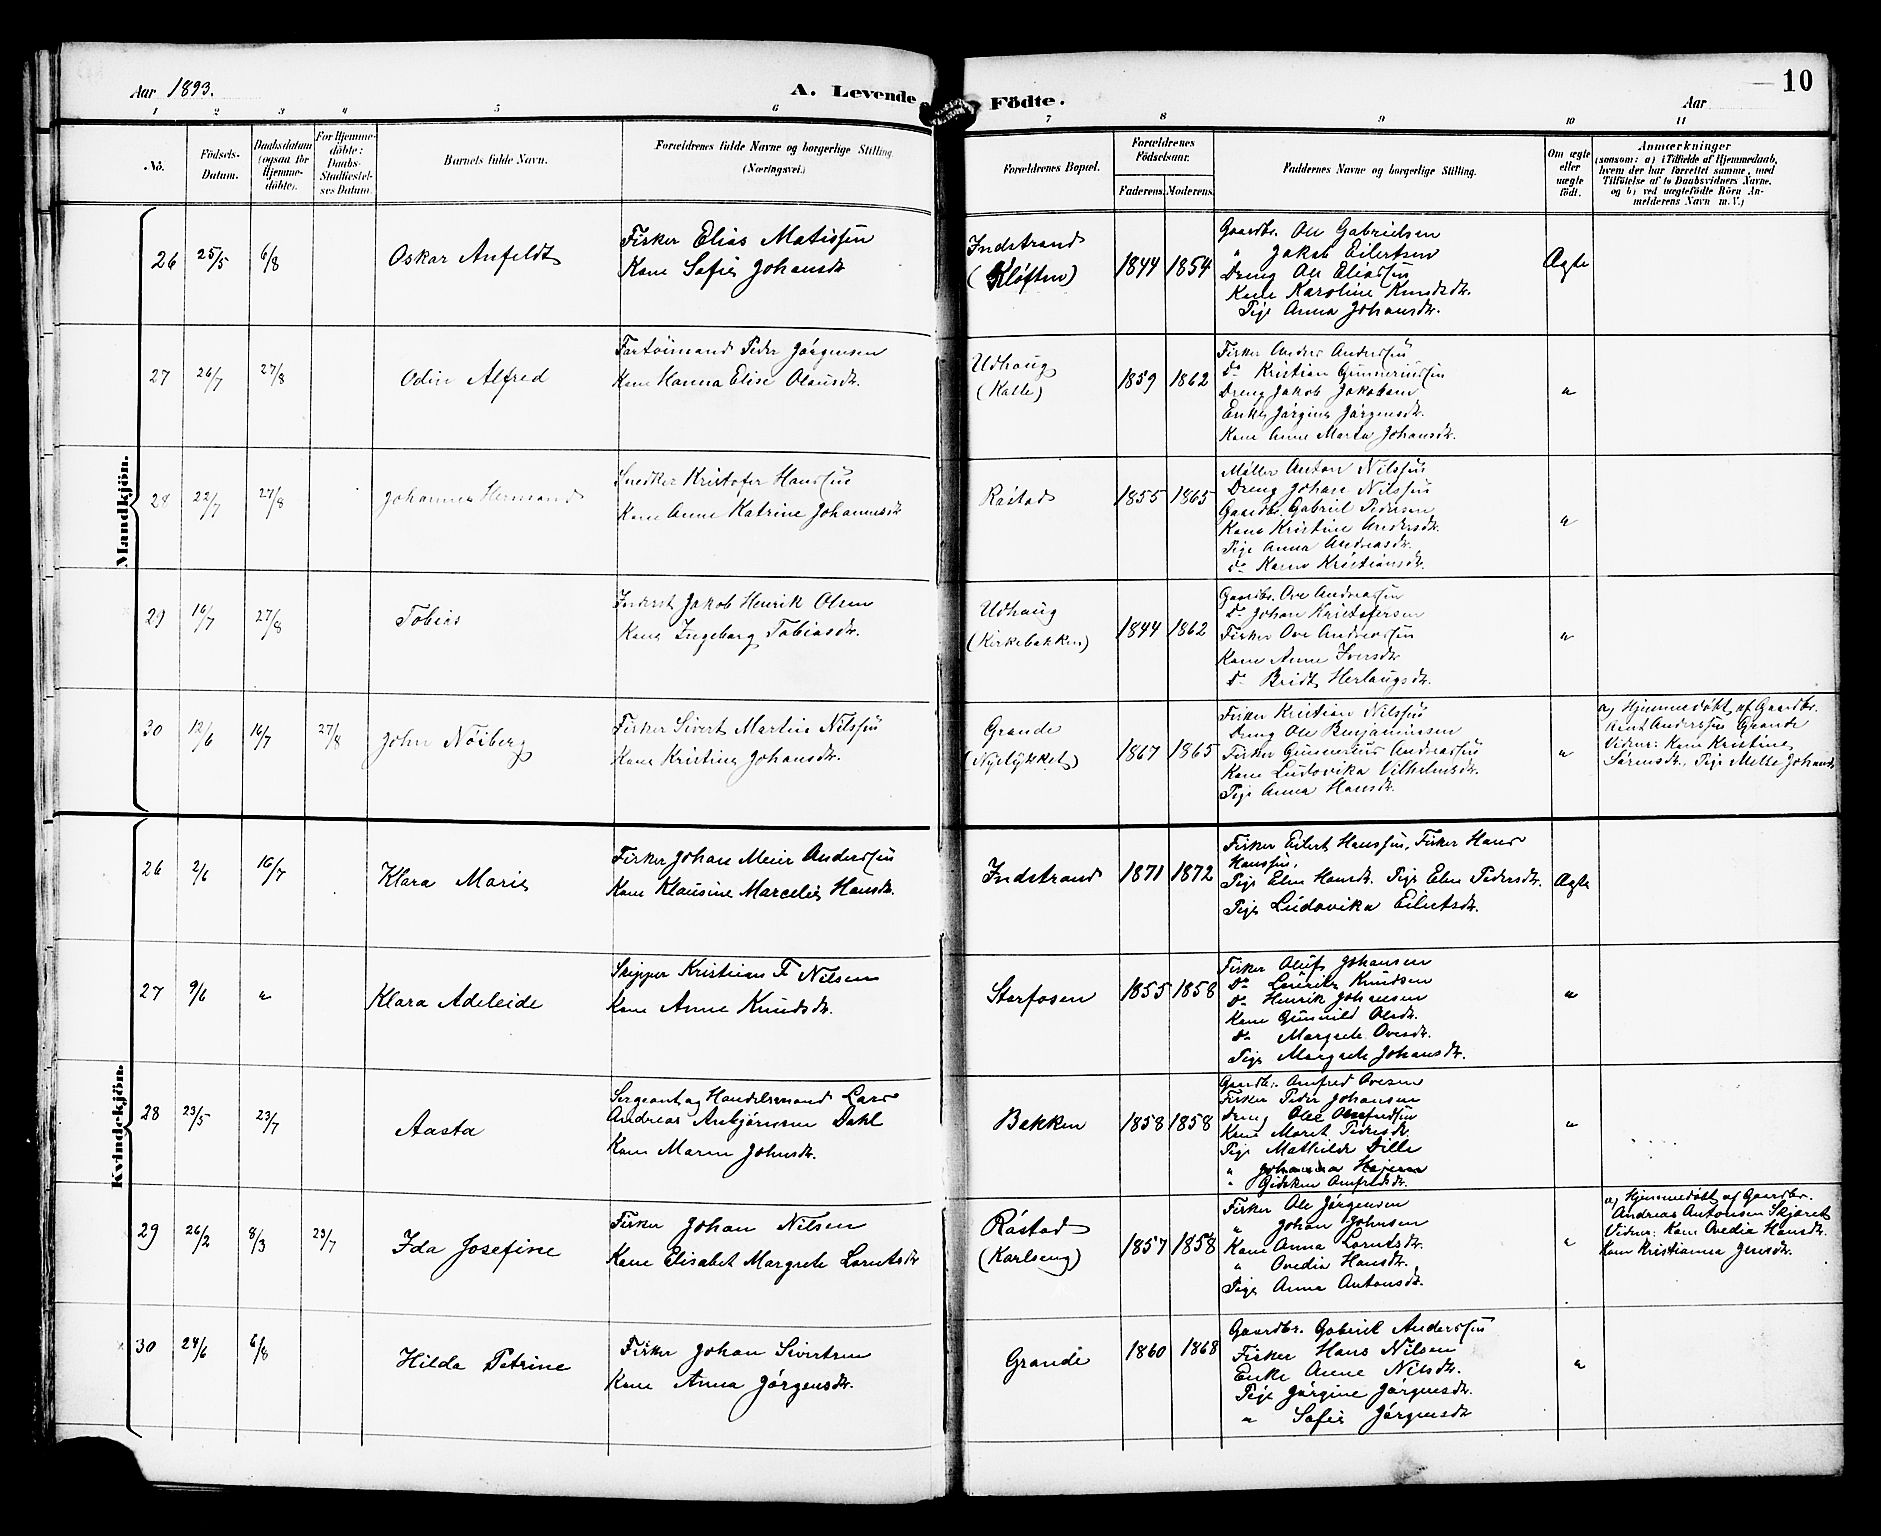 Aar 1893.
A. Levende Födte.
Aar
10
1 2 3 4 5 6 7 8 9 10 11
No.
Födsels-Datum.
Daabsdatum (ogsaa for Hjemme-döbte).
For Hjemme-döbte: Daabs-Stadfæstel-ses Datum.
Barnets fulde Navn.
Forældrenes fulde Navne og borgerlige Stilling (Næringsvei.)
Forældrenes Bopæl.
Forældrenes Födselsaar.
Faderens. Moderens.
Faddernes Navne og borgerlige Stilling.
Om ægte eller uægte födt.
Anmærkninger
(saasom: a) i Tilfælde af Hjemmedaab, hvem der har forrettet samme, med Tilföielse af to Daabsvidners Navne, og b) ved uægtefödte Börn An-melderens Navn m. V.)
Mandkjön.
26 25/5 6/8
Oskar Anfeldt
Fisker Elias Matissen
Kone Sofie Johansdr
Indstrand
(Kløften)
1844 1854
Gaardbr. Ole Gabrielsen
" Jakob Eilertsen
Dreng Ole Eliassen
Kone Karoline Knudsdr.
Pige Anna Johansdr.
Ægte
27 26/7 27/8
Odin Alfred
Fartöimand Peder Jörgensen
Kone Hanna Elise Olausdr.
Udhaug
(Kalle)
1859 1862
Fisker Anders Anderssen
do Kristian Gunneriussen
Dreng Jakob Jakobsen
Enke Jørgine Jørgensdr.
Kone Anne Marta Johansdr.
"
28 22/7 27/8
Johannes Hermand
Snedker Kristofer Hanssen
Kone Anne Katrine Johannesdr
Råstad
1855 1865
Møller Anton Nilssen
Dreng Johan Nilssen
Gaardbr. Gabriel Pedersen
Kone Kristine Andersdr.
Pige Anna Andreasdr.
do Karen Kristiansdr.
"
29 16/7 27/8
Tobias
Inderst Jakob Henrik Olsen
Kone Ingeborg Tobiasdr.
Udhaug
(Kirkebakken)
1844 1862
Gaardbr. Ove Andreassen
do Johan Kristofersen
Fisker Ove Andreassen
Kone Anne Iversdr
do Bridt Herlaugsdr.
"
30 12/6 16/7 27/8
John Nöiberg
Fisker Sivert Martin Nilssen
Kone Kristine Johansdr.
Grande
(Nyelykket)
1867 1865
Fisker Kristian Nilssen
Dreng Ole Benjaminsen
Fisker Gunnerius Andreassen
Kone Ludovika Vilhelmsdr.
Pige Anna Hansdr.
"
a) Hjemmedøbt af Gaardbr.
Arnt Anderssen Grande
Vidner: Kone Kristine
Sørensdr., Pige Mette Johansdr
Kvindekjön.
26 2/6 16/7
Klara Marie
Fisker Johan Meier Anderssen
Kone Klausine Marcelie Hansdr.
Indstrand
1871 1872
Fisker Eilert Hanssen, Fisker Hans
Hanssen,
Pige Elen Hansdr. Pige Elen Pedersdr.
Pige Ludovika Eilertsdr.
Ægte
27 9/6 "
Klara Adeleide
Skipper Kristian F Nilsen
Kone Anne Knudsdr.
Storfosen
1855 1858
Fisker Oluf Johansen
do Lauritz Knudsen
do Henrik Johansen
Kone Gunnild Olsdr.
do Margrete Ovesdr.
Pige Margrete Johansdr.
"
28 23/5 23/7
Aasta
Sergeant og Handelsmand Lars
Andreas Arnbjørnsen Dahl
Kone Maren Johnsdr.
Bakken
1858 1858
Gaardbr. Amfred Ovesen
Fisker Peder Johansen
Dreng Ole Amfredsen
Kone Maret Pedersdr.
Pige Mathilde Dille
" Johanna
" Gidsken Amfredsdr.
"
29 26/2 8/3 23/7
Ida Josefine
Fisker Johan Nilsen
Kone Elisabet Margrete Lorntsdr
Råstad
(Karlseng)
1857 1858
Fisker Ole Jørgensen
" Johan Johnsen
Kone Anna Lorntsdr.
" Ovedia Hansdr.
Pige Anna Antonsdr.
"
a) Hjemmedøbt af Gaardbr.
Andreas Antonsen Skjøret
Vidner: Kone Ovedia Hansdr.
Kone Kristianna Jensdr.
30 24/6 6/8
Hilda Petrine
Fisker Johan Sivertsen
Kone Anna Jørgensdr.
Grande
1860 1868
Gaardbr. Gabriel Anderssen
Fisker Hans Nilsen
Enke Anne Nilsdr.
Pige Jørgine Jørgensdr.
" Sofie Jørgensdr
"